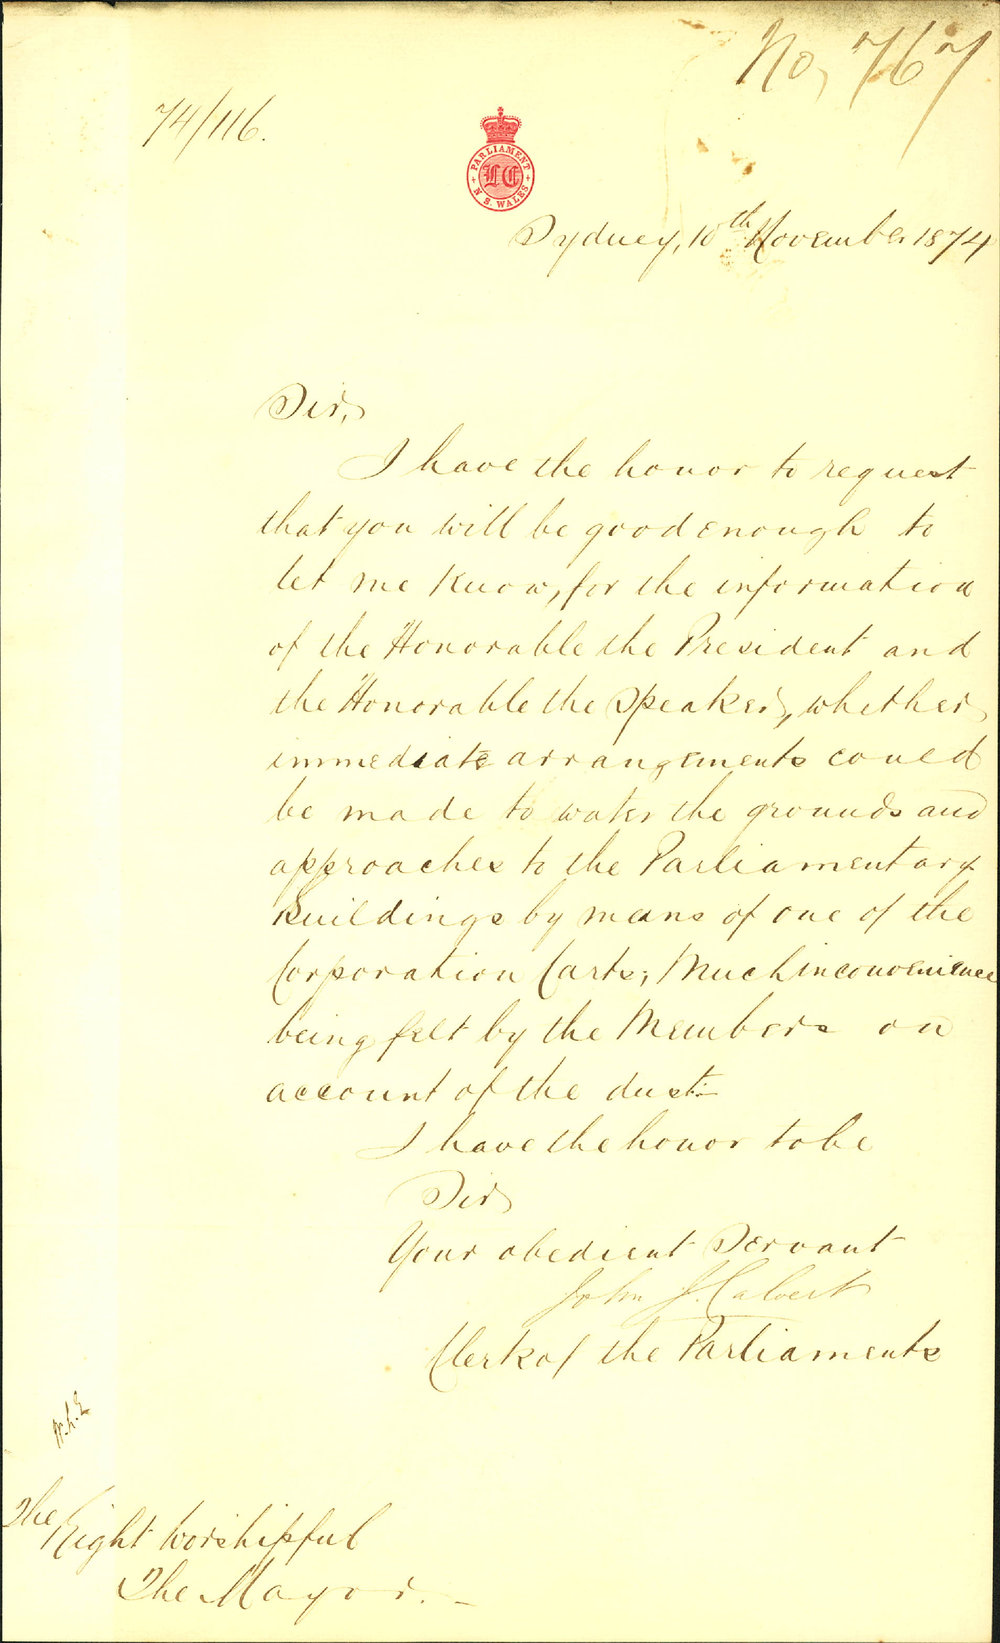 No, 767
74/116.
PARLIAMENT
LC
N. S. WALES
Sydney, 10th November 1874
Sir,
I have the honor to request
that you will be good enough to
let me know, for the information
of the Honorable the President and
the Honorable the Speaker, whether
immediate arrangements could
be made to water the grounds and
approaches to the Parliamentary
Buildings by means of one of the
Corporation Carts; Much inconvenience
being felt by the Members on
account of the dust.—
I have the honor to be
Sir
Your obedient Servant
John J. Calvert
Clerk of the Parliaments
The Right Worshipful
The Mayor. —